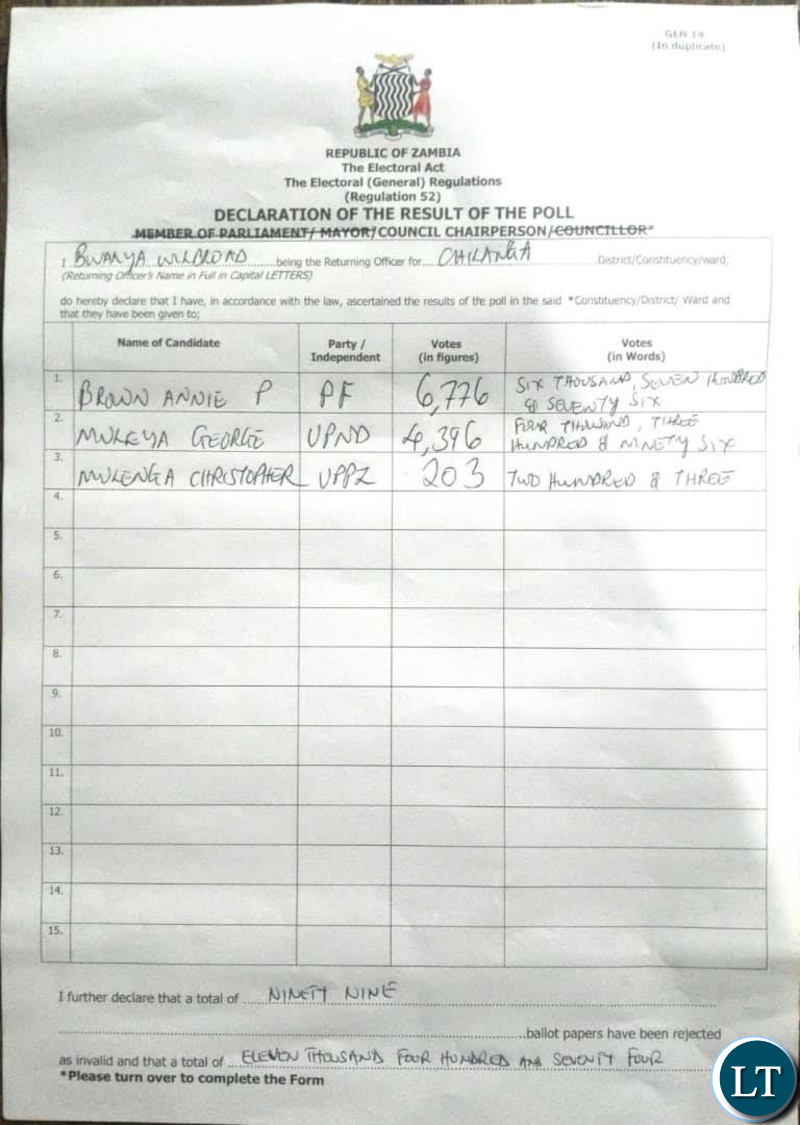 GEN 14
(In duplicate)
REPUBLIC OF ZAMBIA
The Electoral Act
The Electoral (General) Regulations
(Regulation 52)
DECLARATION OF THE RESULT OF THE POLL
MEMBER OF PARLIAMENT/ MAYOR/COUNCIL CHAIRPERSON/COUNCILLOR*
I BWALYA WILBROAD being the Returning Officer for CHILANGA District/Constituency/ward,
(Returning Officer's Name in Full in Capital LETTERS)
do hereby declare that I have, in accordance with the law, ascertained the results of the poll in the said *Constituency/District/ Ward and
that they have been given to;
Name of Candidate Party / Independent Votes (in figures) Votes (in Words)
1. BROWN ANNIE P PF 6,776 SIX THOUSAND, SEVEN HUNDRED & SEVENTY SIX
2. MULEYA GEORGE UPND 4,396 FOUR THOUSAND, THREE HUNDRED & NINETY SIX
3. MULENGA CHRISTOPHER UPPZ 203 TWO HUNDRED & THREE
4.
5.
6.
7.
8.
9.
10.
11.
12.
13.
14.
15.
I further declare that a total of NINETY NINE
ballot papers have been rejected
as invalid and that a total of ELEVEN THOUSAND FOUR HUNDRED AND SEVENTY FOUR
*Please turn over to complete the Form
LT